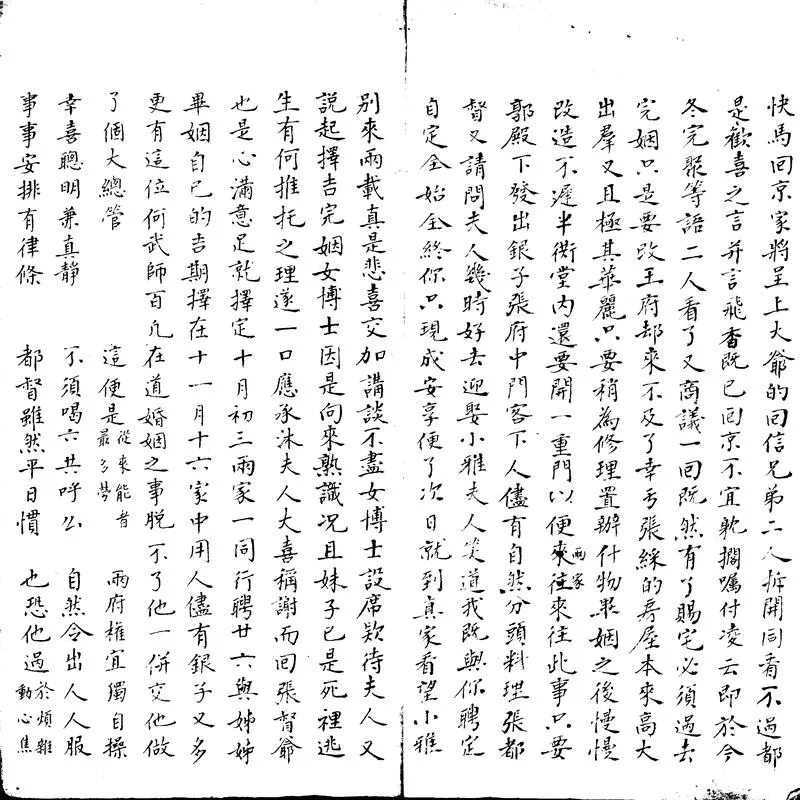 快馬回京家將呈上大爺的回信兄弟二人拆開同看不過都
是歡喜之言并言飛香既已回京不宜躭擱囑付凌云即於今
冬完聚等語二人看了又商議一回既然有了賜宅必須過去
完姻只是要改王府却來不及了幸亏張綵的房屋本來高大
出羣又且極其華麗只要稍為修理置辦什物畢姻之後慢慢
改造不遲半衖堂內還要開一重門以便來往兩家來往此事只要
郭殿下發出銀子張府中門客下人儘有自然分頭料理張都
督又請問夫人幾時好去迎娶小雅夫人笑道我既與你聘定
自定全始全終你只現成安享便了次日就到真家看望小雅
別來兩載真是悲喜交加講談不盡女博士設席欵待夫人又
說起擇吉完姻女博士因是向來熟識况且妹子已是死裡逃
生有何推托之理遂一口應承沐夫人大喜稱謝而回張督爺
也是心滿意足就擇定十月初三兩家一同行聘廿六與姊姊
畢姻自已的吉期擇在十一月十六家中用人儘有銀子又多
更有這位何武師百凡在道婚姻之事脱不了他一併交他做
了個大總管 這便是從來能者最多勞 兩府權宜獨自操
幸喜聰明兼真靜 不須喝六共呼公 自然令出人人服
事事安排有律條 都督雖然平日慣 也恐他過於煩雜動心焦